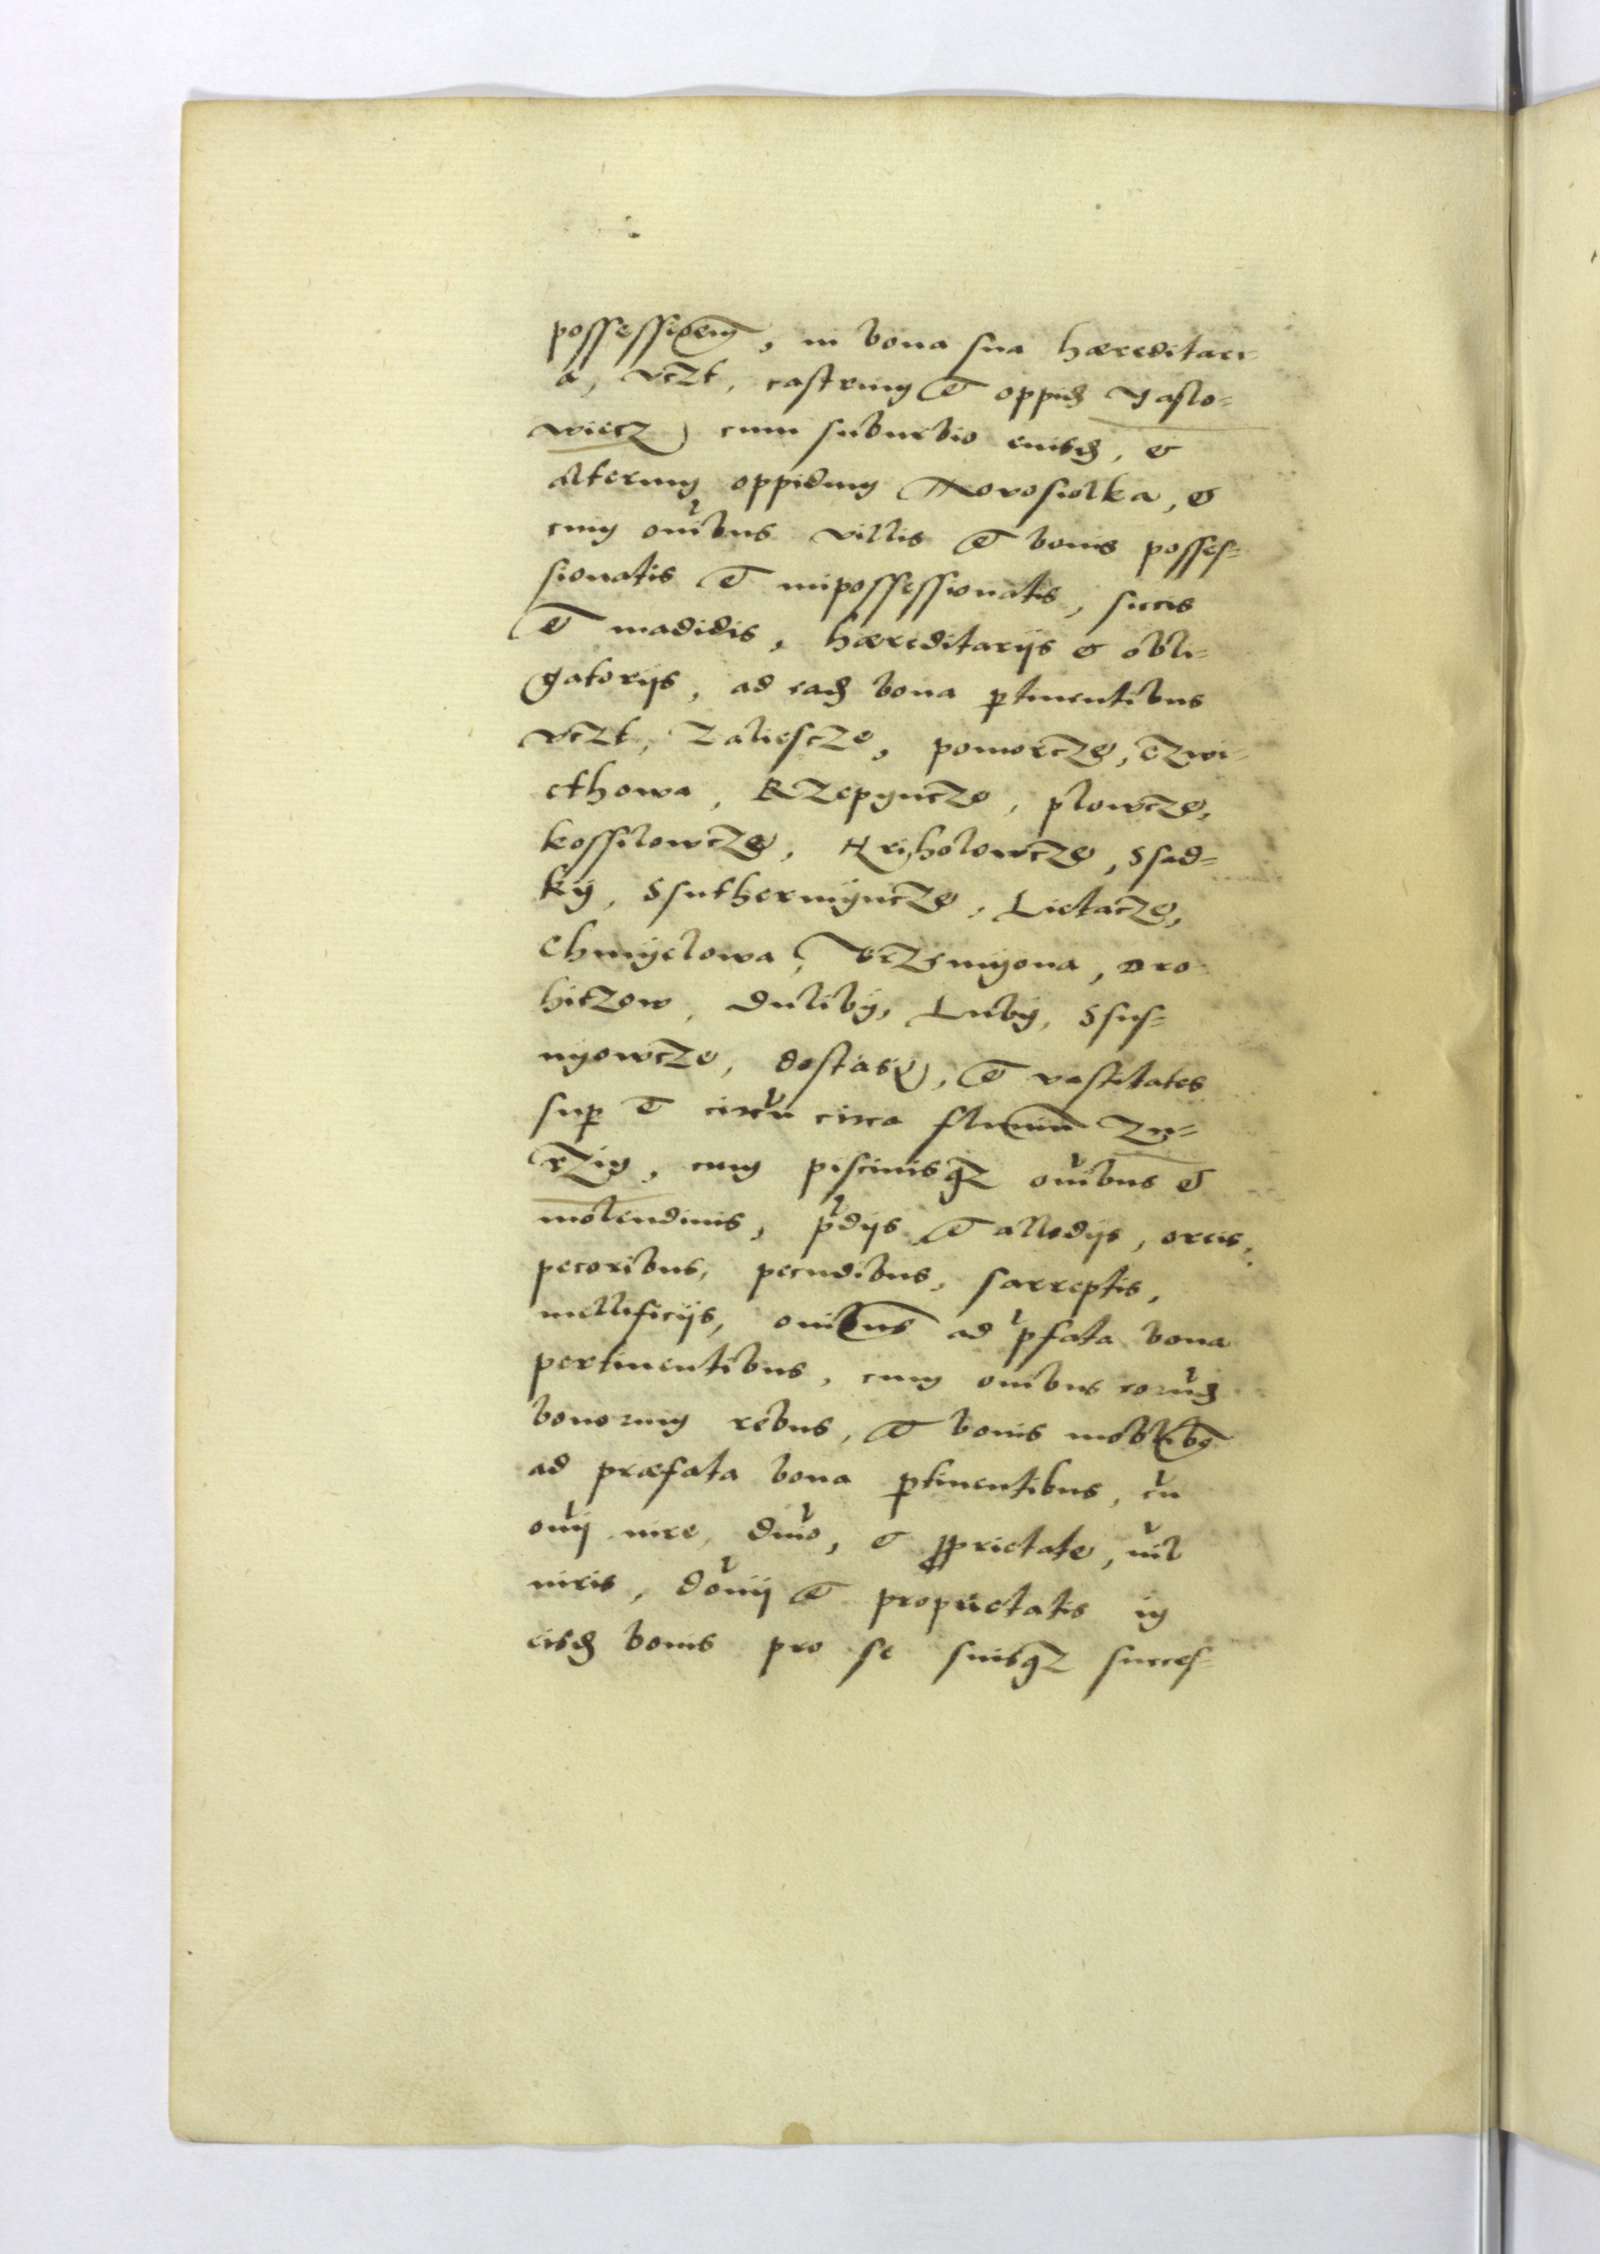 possessionem, in bona sua hæreditari-
a, vczt, castrum et oppid Yaslo=
wiecz, cum suburbio eiusd, et
alterum oppidum Nowosiolka, et
cum omibus villis et bonis posses=
sionatis et inpossessionatis, siccis
et madidis, hæreditarijs et obli=
gatorijs, ad ead bona ptinentibus
vczt, Zaliescze, pomorcze, Czwi-
ethowa, Rzepyncze, plowcze,
kossilowcze, Hriholowcze, Ssad=
ky, Ssuthermyncze, Lietacze,
Chmyelowa, Vczemyona, Dro
hiczow, Duliby, Luby, Ssus=
nyowcze, et vastitates
sup et circu circa flumin Zu=
rzig, cum piscinisqz omibus et
molendinis, pdijs et allodijs, orcis,
pecoribus, pecudibus, sarreptis,
mellificijs, omibus ad pfata bona
pertinentibus, cum omibus eorud
bonorum rebus, et bonis moblibus
ad præfata bona ptinentibus, cu
omi iure, dnio, et pprietate, nil
iuris, domij et proprietatis in
eisd bonis pro se suisqz succes=